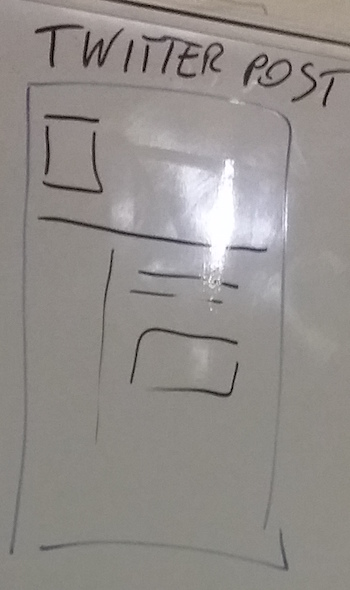 TWITTER POST